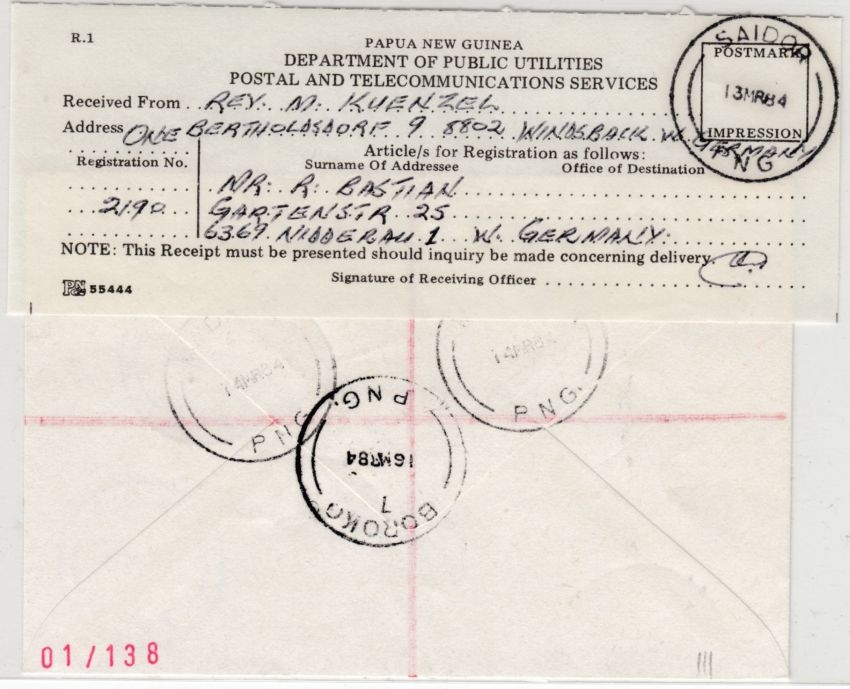 R.1
PAPUA NEW GUINEA
DEPARTMENT OF PUBLIC UTILITIES
POSTAL AND TELECOMMUNICATIONS SERVICES
SAIDOR
POSTMARK
13MR84
IMPRESSION
PNG
Received From REV. M. KUENZEL
Address ONE BERTHOLDSDORF 9 8802 WINDSBACK W. GERMANY
Article/s for Registration as follows:
Registration No. Surname Of Addressee Office of Destination
MR. R. BASTIAN
2190 GARTENSTR 25
6369 NIDDERAU 1 W. GERMANY.
NOTE: This Receipt must be presented should inquiry be made concerning delivery.
Signature of Receiving Officer
55444
14MR84
PNG
14MR84
PNG.
PNG.
16MR84
7
BOROKO
01/138